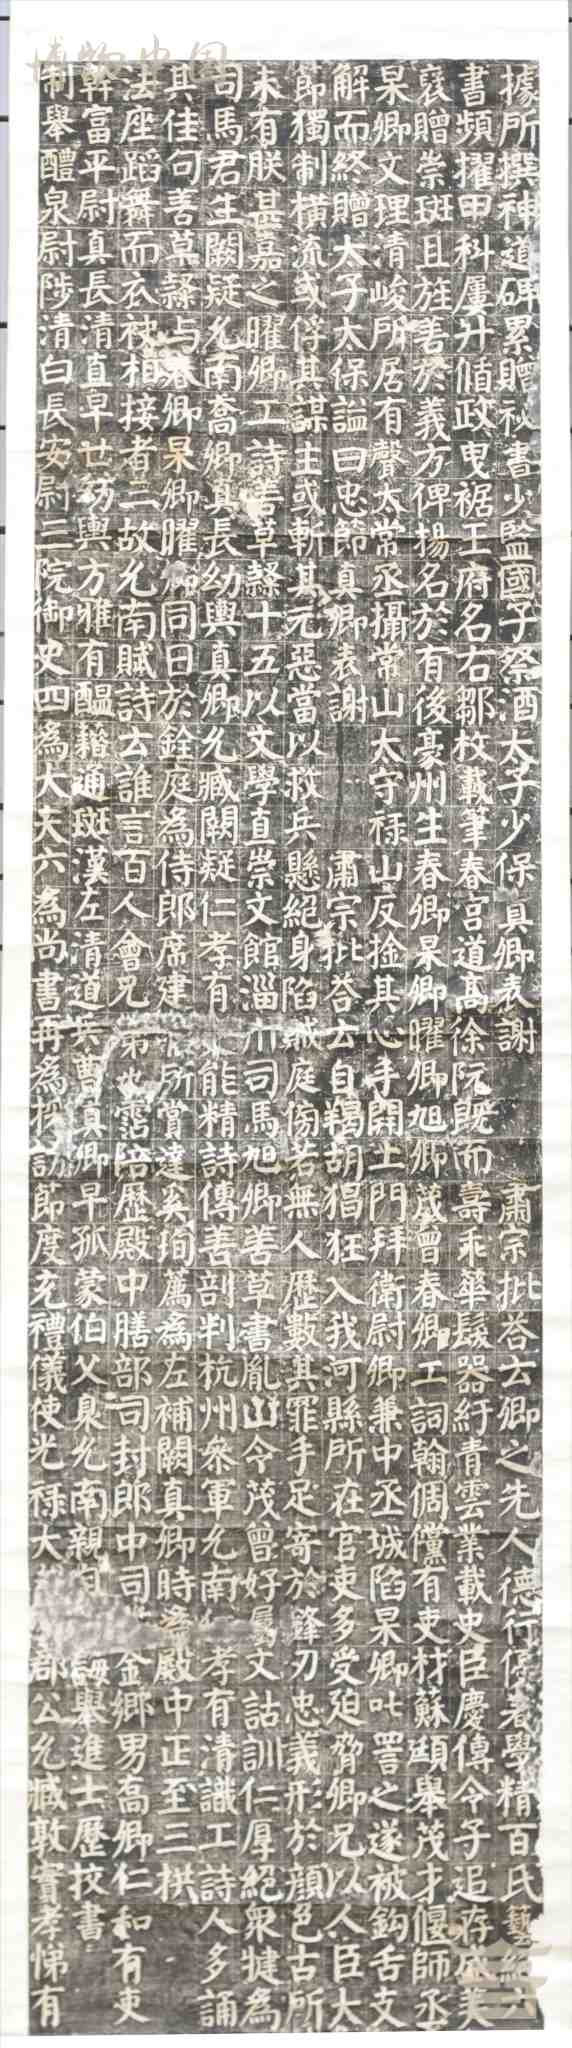 據所撰神道碑累贈祕書少監國子祭酒太子少保真卿表謝 肅宗批荅云卿之先人德行優著學精百氏藝絕六
書頻擢甲科屢升循政曳裾王府名右鄒枚載筆春宮道高徐阮既而壽乖華髮器紆青雲業載史臣慶傳令子追存盛美
襃贈崇班且旌善於義方俾揚名於有後豪州生春卿杲卿曜卿旭卿茂曾春卿工詞翰倜儻有吏材蘇頲舉茂才偃師丞
杲卿文理清峻所居有聲太常丞攝常山太守祿山反擒其心手開土門拜衛尉卿兼中丞城陷杲卿叱詈之遂被鈎舌支
解而終贈太子太保謚曰忠節真卿表謝 肅宗批荅云自羯胡猖狂入我河縣所在官吏多受迫脅卿兄以人臣大
節獨制橫流或俘其謀主或斬其元惡當以救兵懸絕身陷賊庭傍若無人歷數其罪手足寄於鋒刃忠義形於顏色古所
未有朕甚嘉之曜卿工詩善草隸十五以文學直崇文館淄川司馬旭卿善草書胤山令茂曾好屬文詁訓仁厚絕眾犍為
司馬君生闕疑允南喬卿真長幼輿真卿允臧闕疑仁孝有 能精詩傳善剖判杭州參軍允南仁孝有清識工詩人多誦
其佳句善草隸与春卿杲卿曜卿同日於銓庭為侍郎席建 所賞達奚珣薦為左補闕真卿時為殿中正至三拱
法座蹈舞而衣袂相接者二故允南賦詩云誰言百人會兄弟也霑陪歷殿中膳部司封郎中司 金鄉男喬卿仁和有吏
幹富平尉真長清直早世幼輿方雅有醞藉通班漢左清道兵曹真卿早孤蒙伯父臮允南親自 誨舉進士歷校書
制舉醴泉尉陟清白長安尉三院御史四為大夫六為尚書再為採訪節度充禮儀使光祿大 郡公允臧敦實孝悌有
博物中国